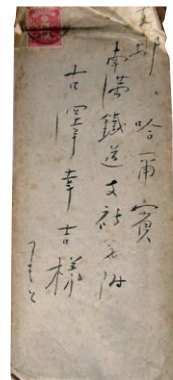 那、哈爾賓
南滿鐵道支社気附
吉澤幸吉様